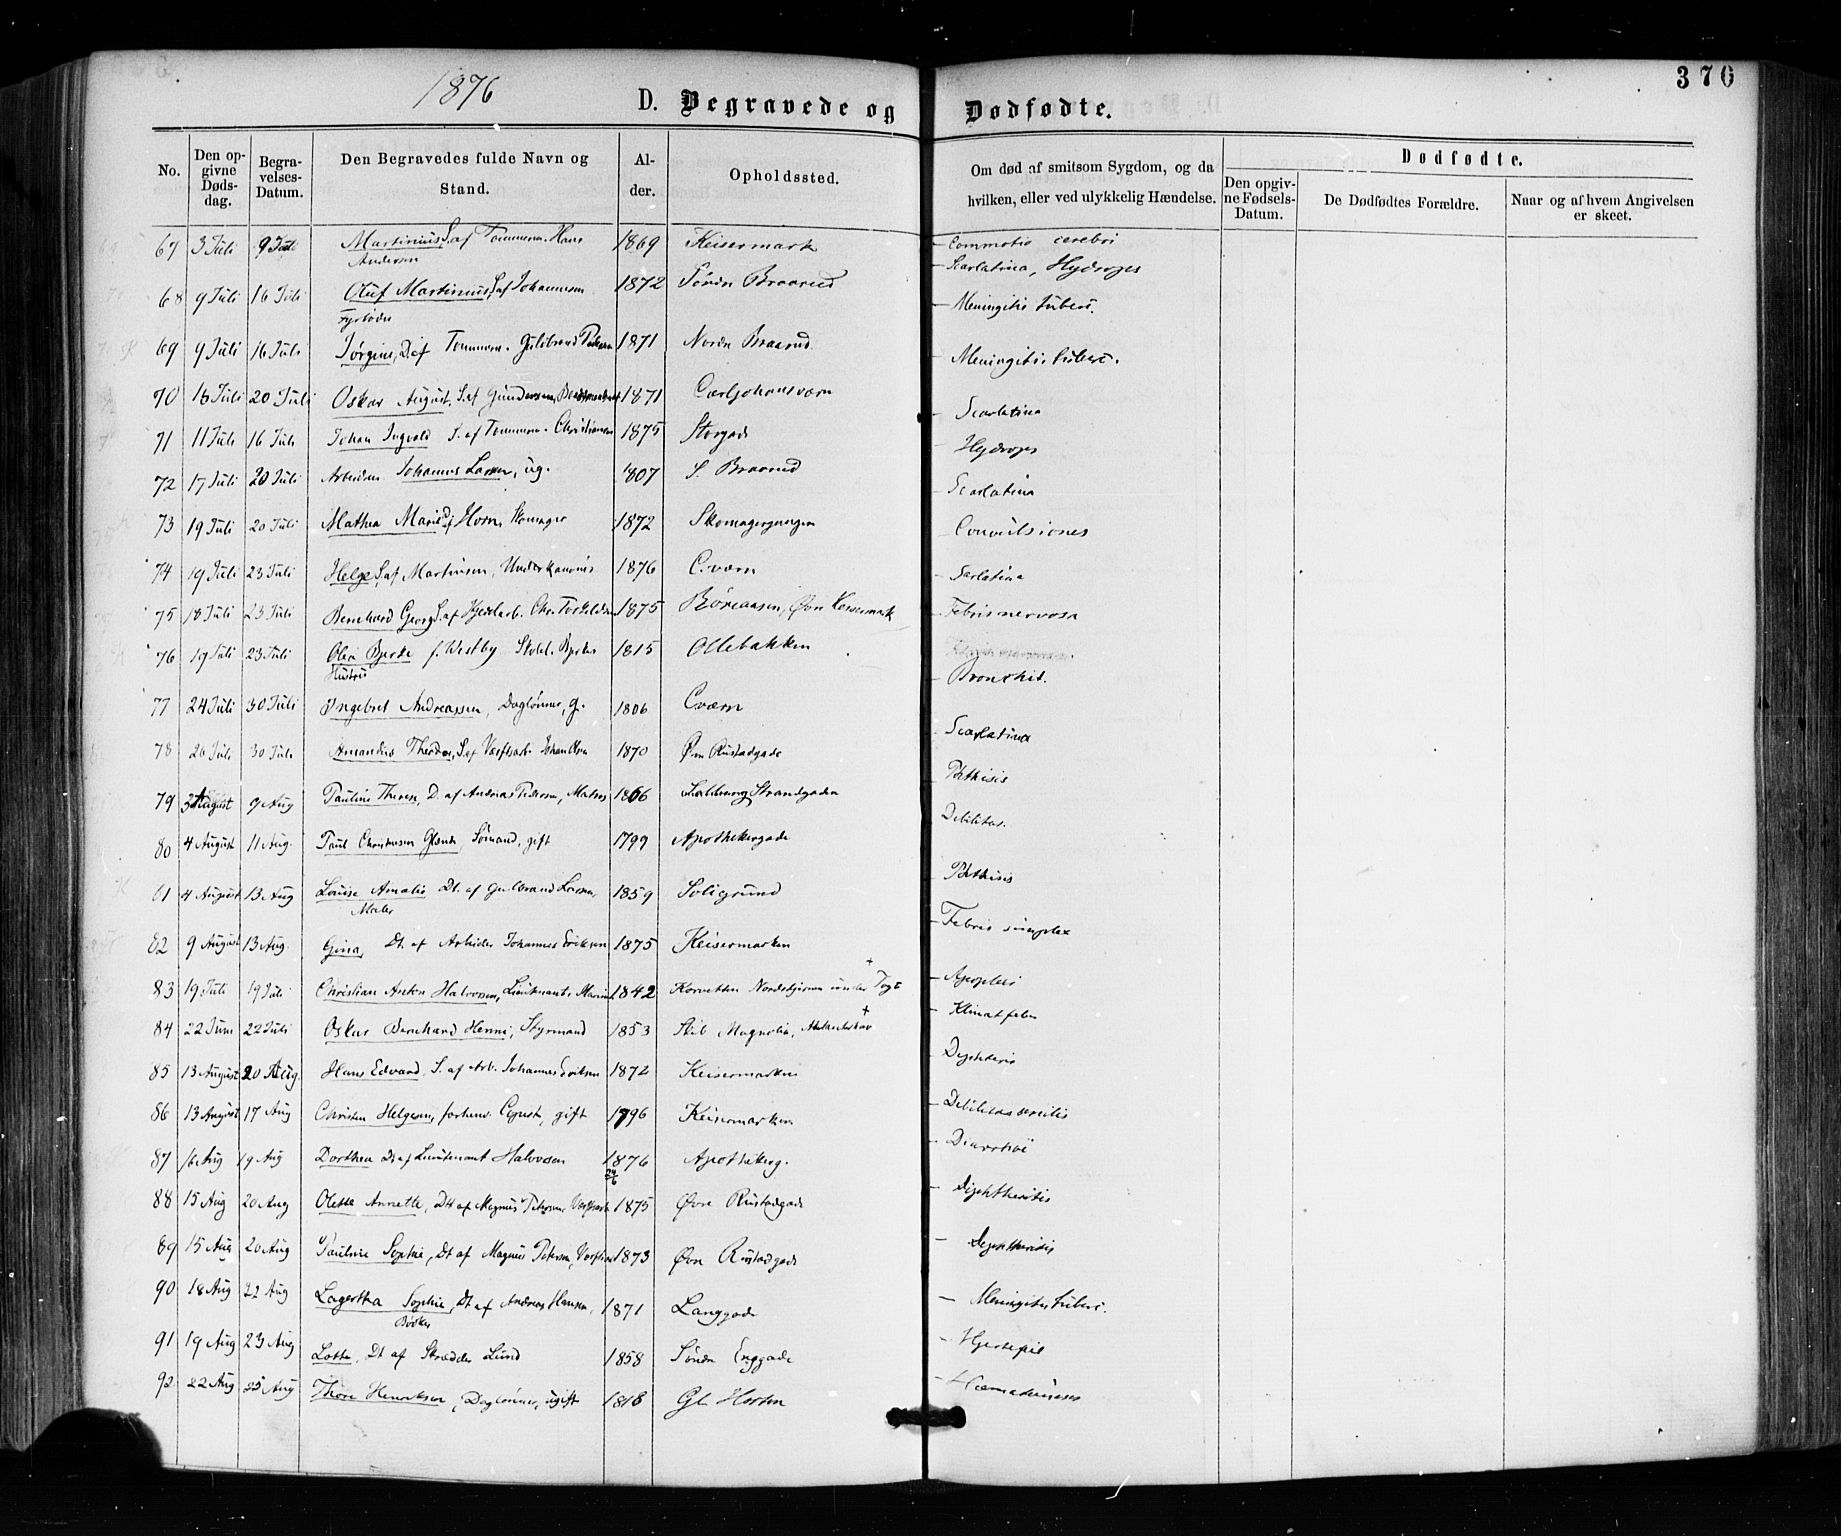 1876
370
D. Begravede og Dødfødte.
No.
Den opgivne Dødsdag.
Begravelses-Datum.
Den Begravedes fulde Navn og Stand.
Alder.
Opholdssted.
Om død af smitsom Sygdom, og da hvilken, eller ved ulykkelig Hændelse.
Dødfødte.
Den opgivne Fødsels-Datum.
De Dødfødtes Forældre.
Naar og af hvem Angivelsen er skeet.
67 3 Juli 9 Juli Martinius, S. af Tømmerm. Hans Andersen 1869 Keisermark Commotio cerebri
68 9 Juli 16 Juli Oluf Martinius, S. af Johannesen Fyrbøder 1872 Søndr Braarud Scarlatina, Hydrops
69 9 Juli 16 Juli Jørgine, D. af Tømmerm. Gulbrand 1871 Nordr Braarud Meningitis tuberc.
70 16 Juli 20 Juli Oskar August, S. af Gundersen 1871 Carljohansværn Meningitis tuberc.
71 11 Juli 16 Juli Johan Ingvald S. af Tømmerm. Christiansen 1875 Storgade Scarlatina
72 17 Juli 20 Juli Arbeider Johannes Larsen, ug. 1807 S. Braarud Hydrops
73 19 Juli 20 Juli Mathea Marie D. af Horn, Skomager 1872 Skomagergangen Scarlatina
74 19 Juli 23 Juli Helge, S. af Martinsen, Underkanoner 1876 C.værn Convulsiones
75 18 Juli 23 Juli Bernhard Georg S. af Chr. 1875 Øvre Keisermark Scarlatina
76 19 Juli 23 Juli Olea Bjerke f. Westby Bjerkes Hustru 1815 Ollebakken Febris nervosa
77 24 Juli 30 Juli Ingebret Andreassen, Daglønner, g. 1806 C.værn Bronchit.
78 26 Juli 30 Juli Amandus Theodor, S. af Værftsarb. Johan Olsen 1870 Øvre Rustadgade Scarlatina
79 3 August 9 Aug Pauline Therese, D. af Andreas Pedersen, Matros 1866 Strandgaden Phthisis
80 4 August 11 Aug. Paul Christensen Sømand, gift 1799 Apothekergade Debilitas.
81 4 August 13 Aug Louise Amalie Dt. af Gulbrand Larsen, Maler 1859 Soligrund Phthisis
82 9 August 13 Aug. Gina, Dt. af Arbeider Johannes Eriksen 1875 Keisermarken Febris simplex
83 19 Juli 19 Juli Christian Anton Halvorsen, Lieutenant i Marinen 1842 Korvetten Nordstjernen under Togt + Apoplexi
84 22 Juni 22 Juli Oskar Bernhard Henni, Styrmand 1853 Skib Magnolia, + Klimatfeber
85 13 August 20 Aug. Hans Edvard, S. af Arb. Johannes Eriksen 1872 Keisermarken Diphtheris
86 13 August 17 Aug Christen Helgesen, gift 1796 Keisermarken Debilitas senilis
87 16 Aug 19 Aug Dorthea Dt. af Lieutenant Halvorsen 1876 24/6 Apothekerg. Diarrhoe
88 15 Aug 20 Aug Olette Annette, Dt af Magnus Petersen 1875 Øvre Rustadgade Diphtheritis
89 15 Aug 20 Aug Pauline Sophie, Dt af Magnus Petersen 1873 Øvre Rustadgade Diphtheritis
90 18 Aug 22 Aug Lagertha Sophie, Dt af Andreas Hansen, Bødker 1871 Langgade Meningitis tuberc.
91 19 Aug 23 Aug Lotte, Dt af Skrædder Lund 1858 Søndre Enggade Hjertefeil
92 22 Aug 25 Aug Thore Henriksen, Daglønner, ugift 1818 Gl. Horten Hæmatemeses